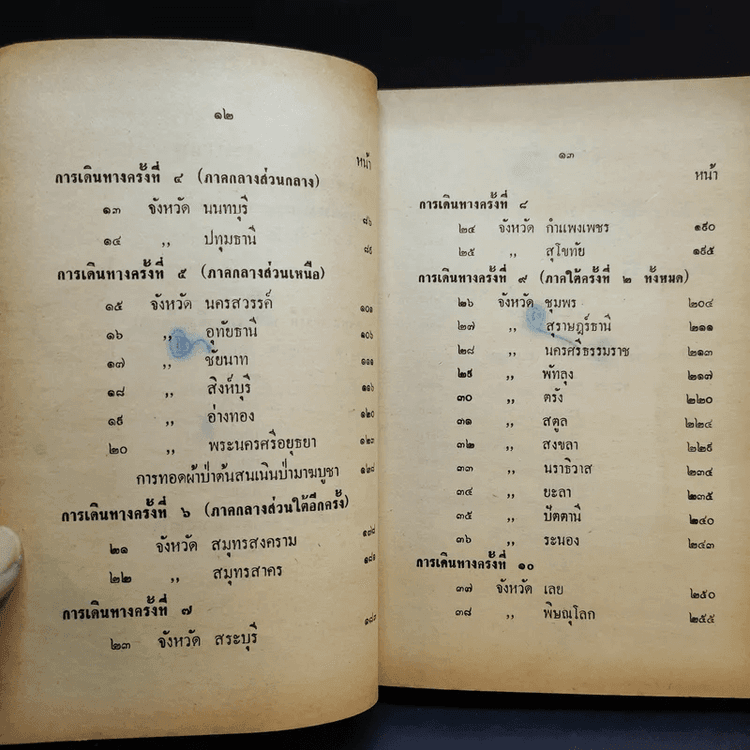 ๑๒
หน้า
การเดินทางครั้งที่ ๔ (ภาคกลางส่วนกลาง)
๑๓ จังหวัด นนทบุรี ๘๖
๑๔ ,, ปทุมธานี ๘๙
การเดินทางครั้งที่ ๕ (ภาคกลางส่วนเหนือ)
๑๕ จังหวัด นครสวรรค์ ๑๐๑
๑๖ ,, อุทัยธานี ๑๐๖
๑๗ ,, ชัยนาท ๑๑๑
๑๘ ,, สิงห์บุรี ๑๑๖
๑๙ ,, อ่างทอง ๑๒๐
๒๐ ,, พระนครศรีอยุธยา ๑๒๓
การทอดผ้าป่าต้นสนเนินป่ามาฆบูชา ๑๒๘
การเดินทางครั้งที่ ๖ (ภาคกลางส่วนใต้อีกครั้ง)
๒๑ จังหวัด สมุทรสงคราม ๑๗๘
๒๒ ,, สมุทรสาคร ๑๘๑
การเดินทางครั้งที่ ๗
๒๓ จังหวัด สระบุรี
๑๓
หน้า
การเดินทางครั้งที่ ๘
๒๔ จังหวัด กำแพงเพชร ๑๙๐
๒๕ ,, สุโขทัย ๑๙๕
การเดินทางครั้งที่ ๙ (ภาคใต้ครั้งที่ ๒ ทั้งหมด)
๒๖ จังหวัด ชุมพร ๒๐๔
๒๗ ,, สุราษฎร์ธานี ๒๑๑
๒๘ ,, นครศรีธรรมราช ๒๑๓
๒๙ ,, พัทลุง ๒๑๗
๓๐ ,, ตรัง ๒๒๐
๓๑ ,, สตูล ๒๒๔
๓๒ ,, สงขลา ๒๒๙
๓๓ ,, นราธิวาส ๒๓๔
๓๔ ,, ยะลา ๒๓๕
๓๕ ,, ปัตตานี ๒๔๐
๓๖ ,, ระนอง ๒๔๓
การเดินทางครั้งที่ ๑๐
๓๗ จังหวัด เลย ๒๕๐
๓๘ ,, พิษณุโลก ๒๕๕